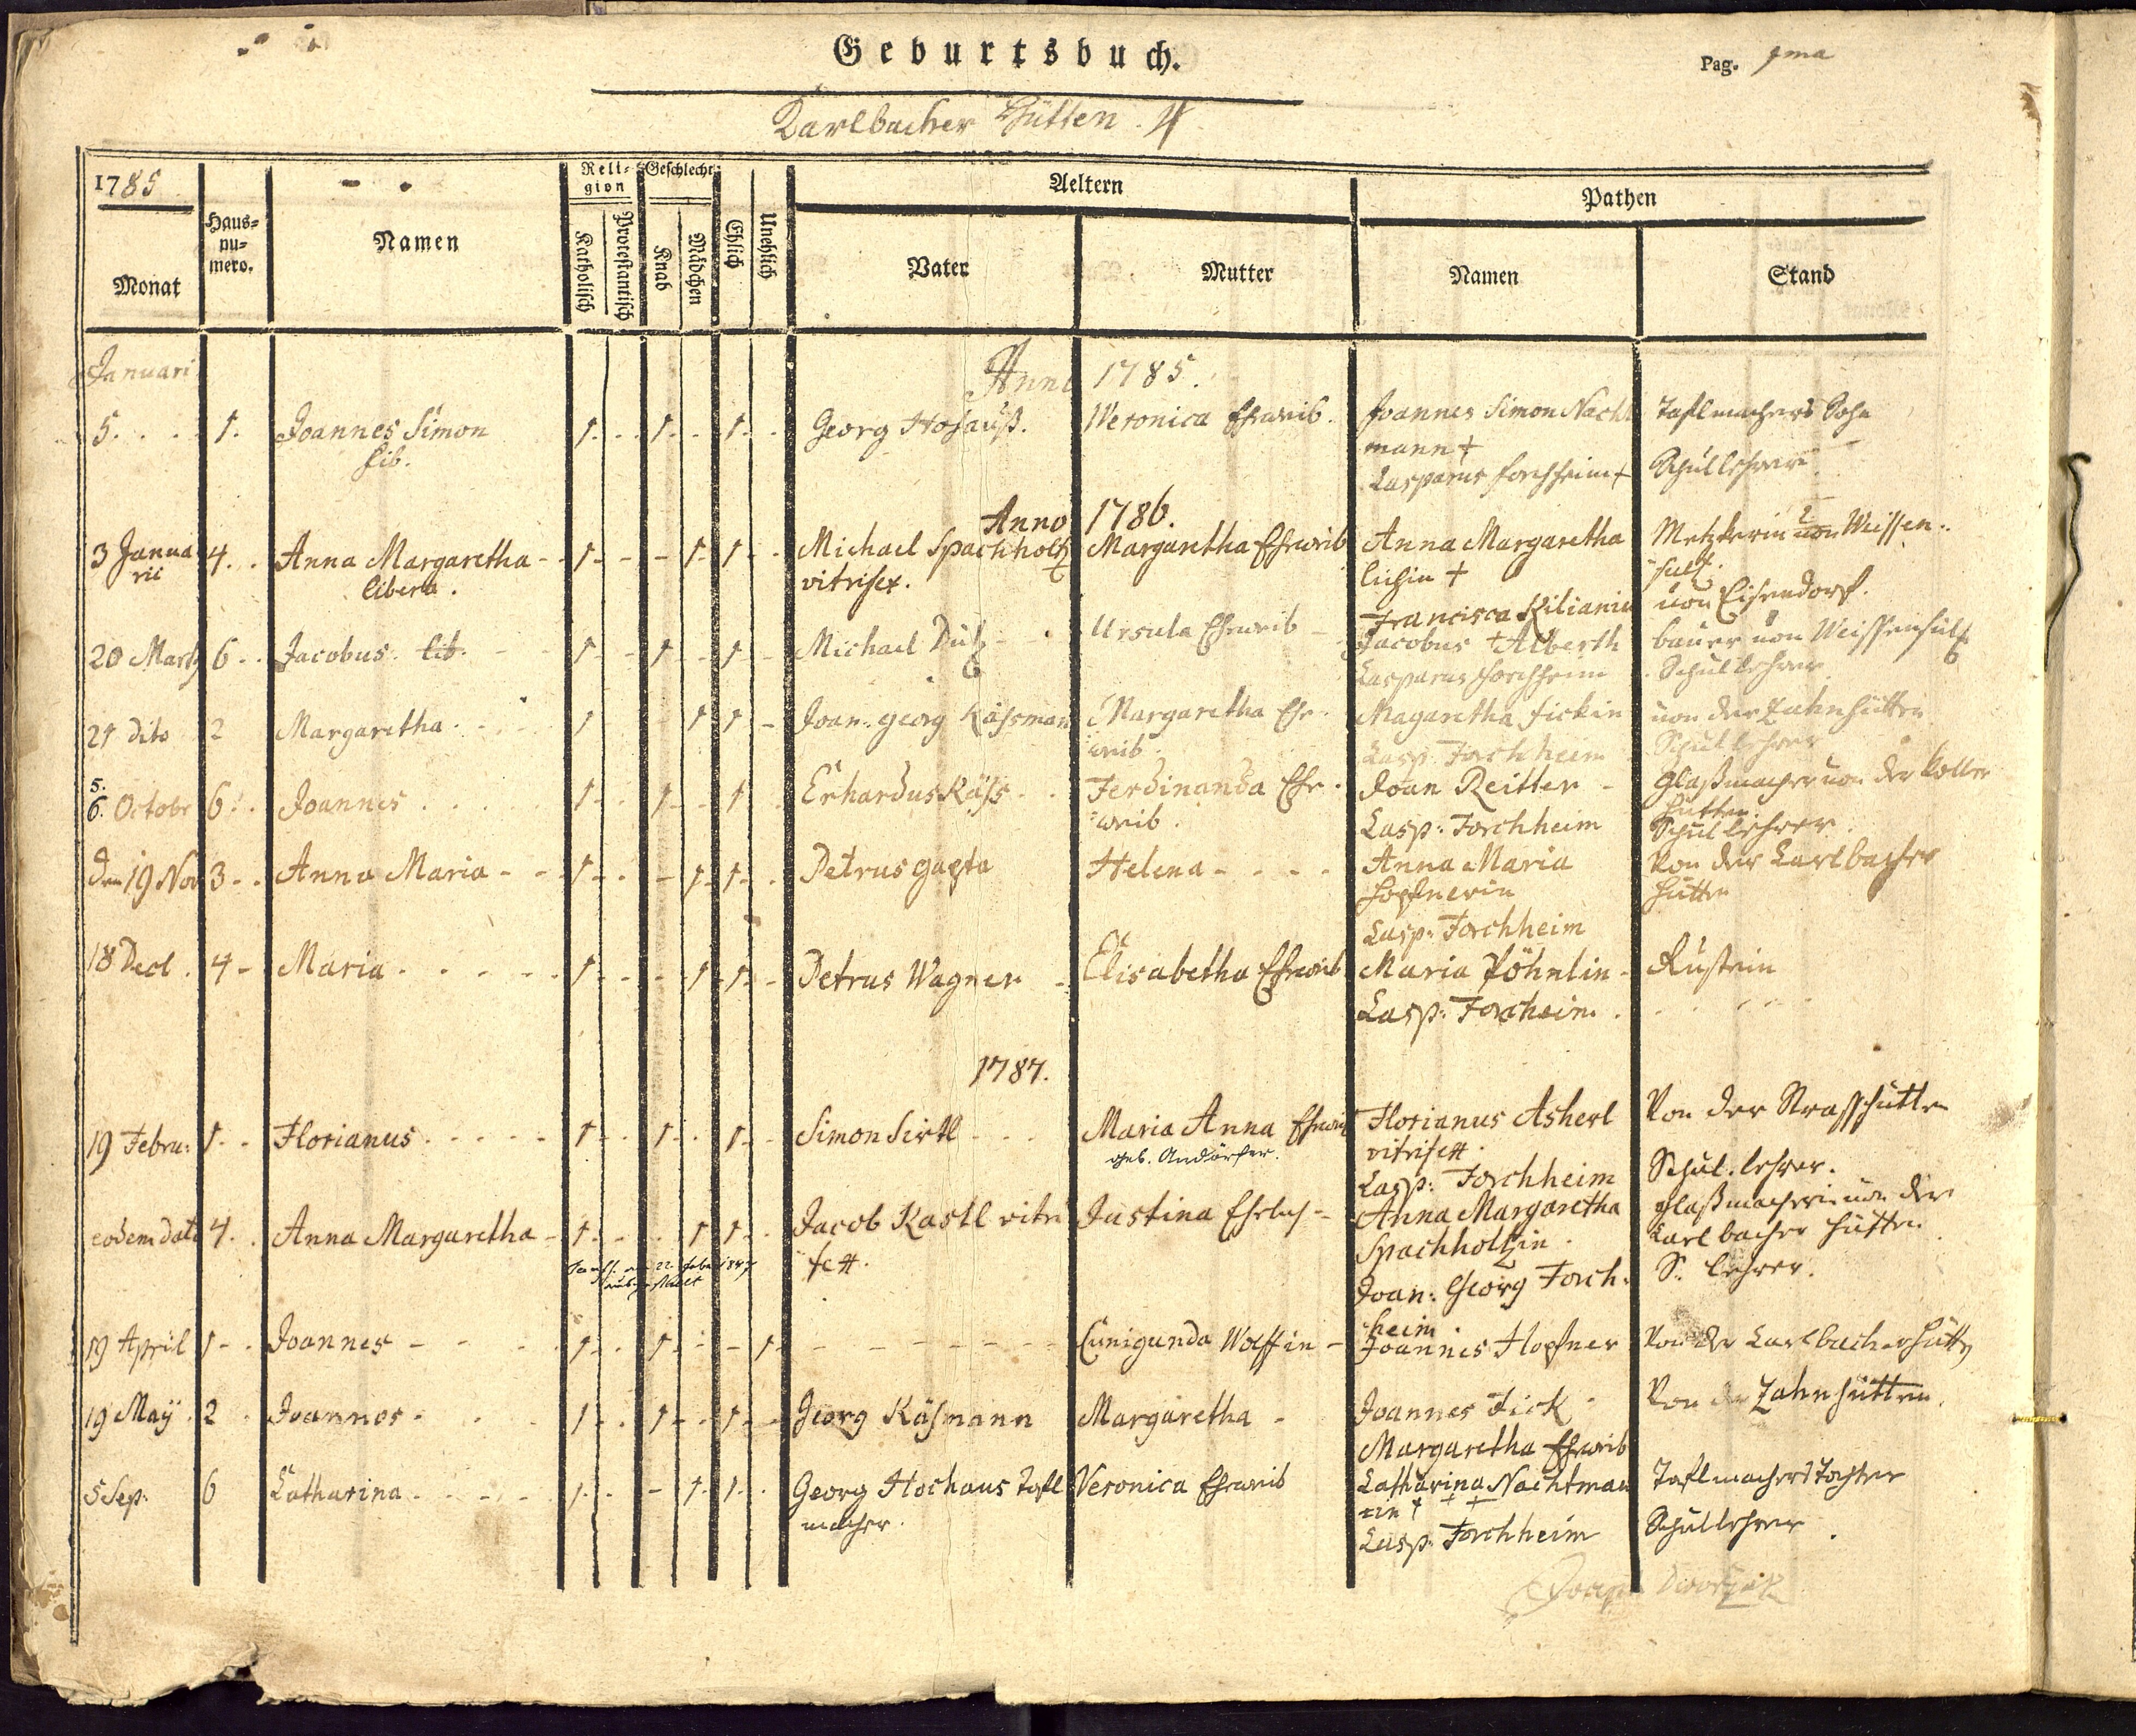 Geburtsbuch.
Pag. 1ma
Karlbacher Hütten
1785
Monat
Haus=
nu=
mero.
Namen
Reli=
gion
Katholisch
Protestantisch
Geschlecht
Knab
Mädchen
Ehlich
Unehlich
Aeltern
Vater
Mutter
Pathen
Namen
Stand
Januari
Anno 1785.
5. 1. Joannes Simon 1. 1. 1. Georg Hohauß. Weronica Eheweib. Joannes Simon Nacht Taflmachers Sohn
lib. mann †
Casparus Forchheim † Schullehrer.
Anno 1786.
3 Janua 4. Anna Margaretha 1 1 1 Michael Spachholtz Margaretha Eheweib Anna Margaretha Metzkerin von Weissen
rii libera. vitrifex. †
sultz.
Francisca Kilianin von Eisendorf.
20 Marty 6 Jacobus lib. 1 1 1 Michael Ursula Eheweib Jacobus † Alberth bauer von Weissensultz
Casparus Forchheim Schullehrer
21 dito 2 Margaretha 1 1 1 Joan. georg Käsman Margaretha Ehe= Magaretha fickin von der Zahnhütten
weib. Casp. Forchheim Schullehrer
5.
6. Octobr 6 Joannes 1 1 1 Erhardus Käss Ferdinanda Ehe= Joan Reitter Glaßmacher von der
weib. Casp: Forchheim Hütten
Schullehrer.
den 19 Nov 3 Anna Maria 1 1 1 Petrus Helena Anna Maria Von der Carlbacher
Hopfnerin Hütten
Casp: Forchheim
18 Decl. 4 Maria 1 1 1 Petrus Wagner Elisabetha Eheweib Maria Pöhnlin
Casp: Forcheim.
1787.
19 Febru: 1 Florianus 1 1 1 Simon Sirtl Maria Anna Eheweib Florianus Asherl Von der Strasshütten
geb. Andörfer. vitrifex.
Casp: Forchheim Schul. lehrer.
eodem dato 4. Anna Margaretha 1 1 1 Jacob Kastl vitri Justina Anna Margaretha glaßmacherin von der
22 1847 fex. Spachholtzin. Carlbacher hütten
Joan: Georg Forch= S. lehrer.
heim.
19 April 1 Joannes 1 1 1 Cunigunda Wolffin Joannes Hopfner Von der Carlbacherhütt
19 Maÿ. 2 Joannes 1 1 1 Georg Käsmann Margaretha Joannes Fick Von der Zahnhütten.
Margaretha Eheweib
5 Sep. 6 Catharina 1 1 1 Georg Hochaus tafl Veronica Eheweib Catharina Nachtman Taflmachers Tochter
macher. nin †
Casp: Forchheim Schullehrer.